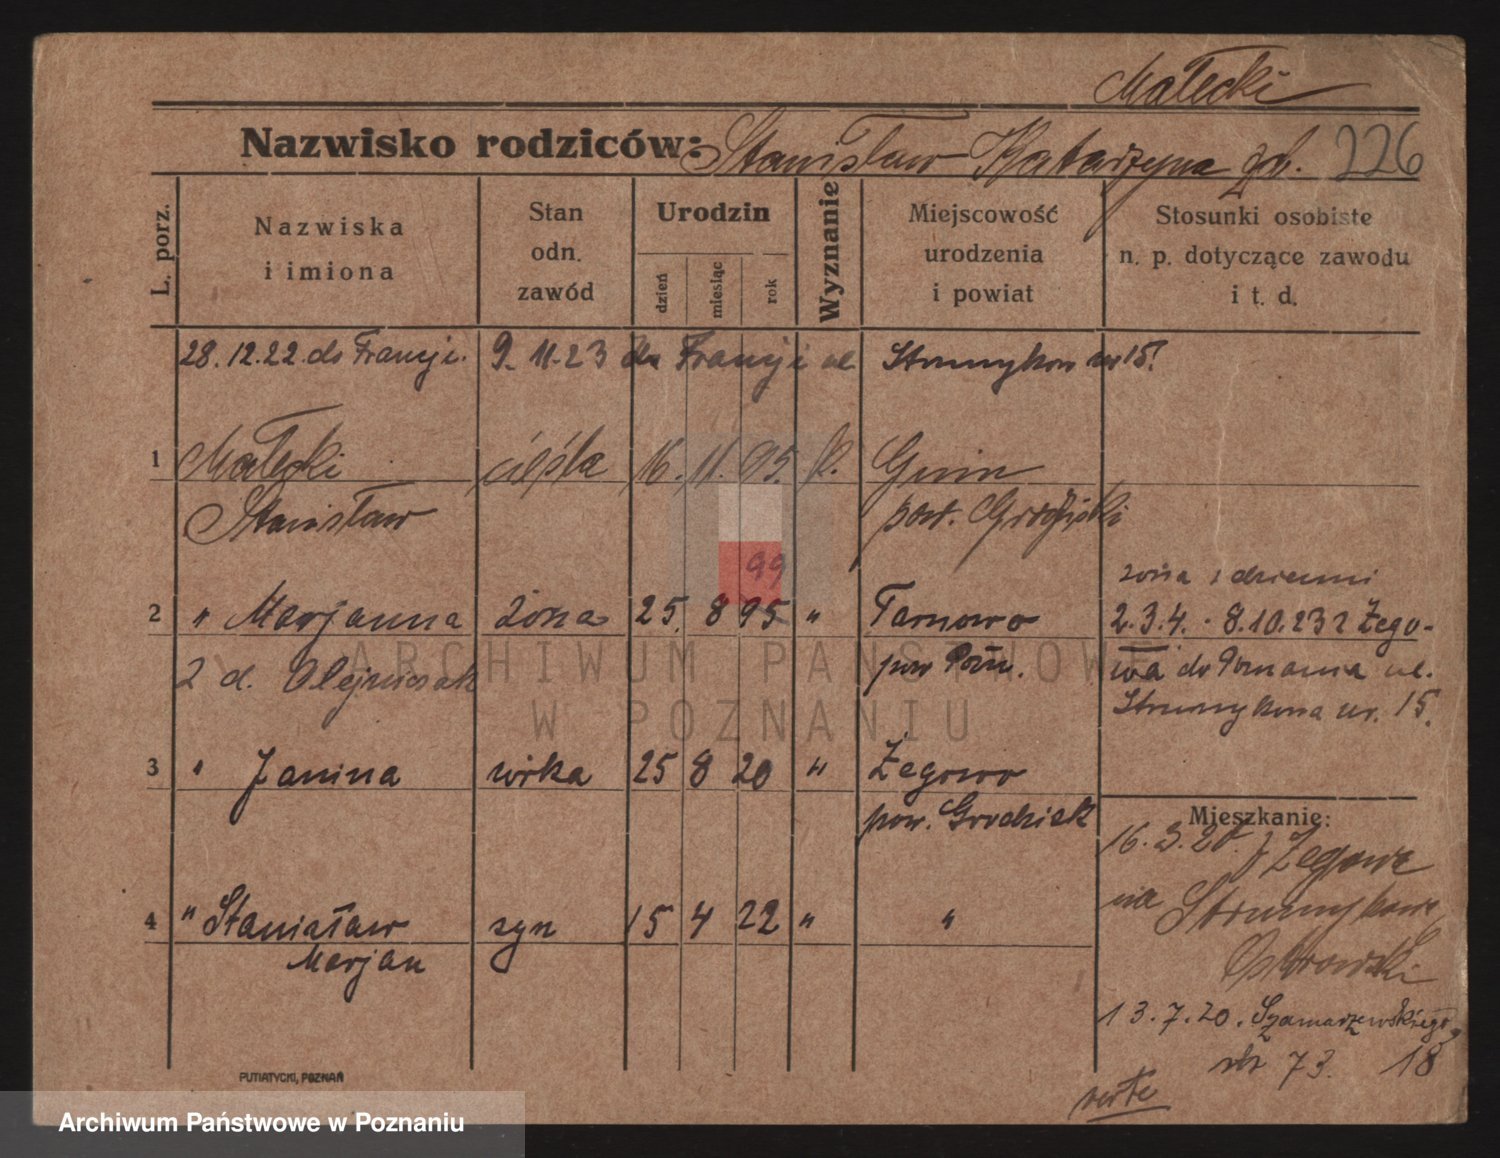 Małecki
Nazwisko rodziców: Stanisław Katarzyna 226
L. porz.
Nazwiska
i imiona
Stan
odn.
zawód
Urodzin
dzień
miesiąc
rok
Wyznanie
Miejscowość
urodzenia
i powiat
Stosunki osobiste
n. p. dotyczące zawodu
i t. d.
28.12.22 do Francji. 9.11.23 do Francji ul. nr 15.
1 Małecki cieśla 16. 11. 95. k.
Stanisław pow. Grodziski
99
żona z dziećmi
2 " Marjanna żona 25. 8 95 " Tarnowo 2.3.4. 8.10.23 z Żego-
2 d. Olejniczak pow Pozn. wa do Poznania ul.
Strumykowa nr. 15.
3 " Janina córka 25 8 20 " Żegowo
pow. Grodzisk
Mieszkanie:
16.3.20. z Żegowa
na Strumykową
4 " Stanisław syn 15 4 22 " "
Marjan
Ostrowski
13.7.20. Szamarzewskiego
18
73.
verte
PUTIATYCKI, POZNAŃ
ARCHIWUM PAŃSTWOWE
W POZNANIU
Archiwum Państwowe w Poznaniu